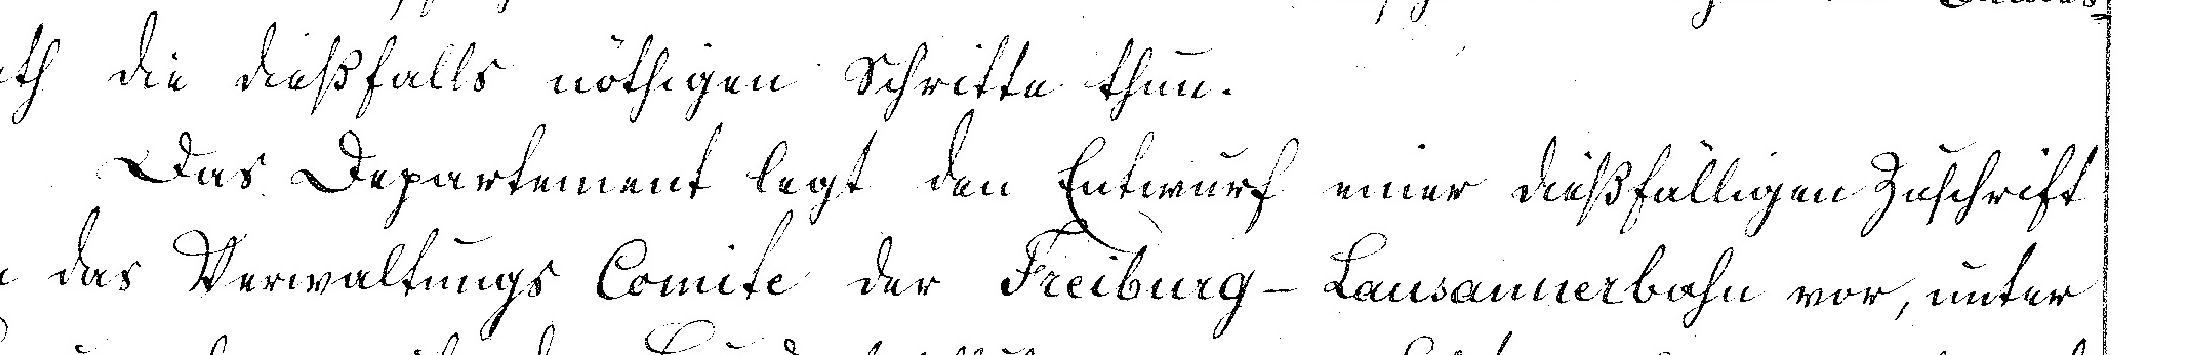 die dießfalls nöthigen Schritte thun.
Das Departement legt den Entwurf einer dießfälligen Zuschrift
das Verwaltungs Comite der Freiburg-Lausannerbahn vor, unter